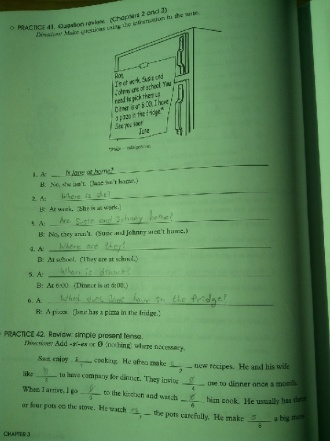 PRACTICE 41. Question review. (Chapters 2 and 3)
Directions: Make questions using the information in the note.
Ron,
I'm at work. Susie and
Johnny are at school. You
need to pick them up.
Dinner is at 6:00. I have
a pizza in the fridge.*
See you soon!
Jane
1. A: Is Jane at home?
B: No, she isn't. (Jane isn't home.)
2. A: Where is she?
B: At work. (She is at work.)
3. A: Are Susie and Johnny home?
B: No, they aren't. (Susie and Johnny aren't home.)
4. A: Where are they?
B: At school. (They are at school.)
5. A: When is dinner?
B: At 6:00. (Dinner is at 6:00.)
6. A: What does Jane have in the fridge?
B: A pizza. (Jane has a pizza in the fridge.)
PRACTICE 42. Review: simple present tense.
Directions: Add -s/-es or Ø (nothing) where necessary.
enjoy cooking. He often make new recipes. He and his wife
like to have company for dinner. They invite me to dinner once a month.
When I arrive, I go to the kitchen and watch him cook. He usually has
or four pots on the stove. He watch es the pots carefully. He make s a big mess
CHAPTER 3